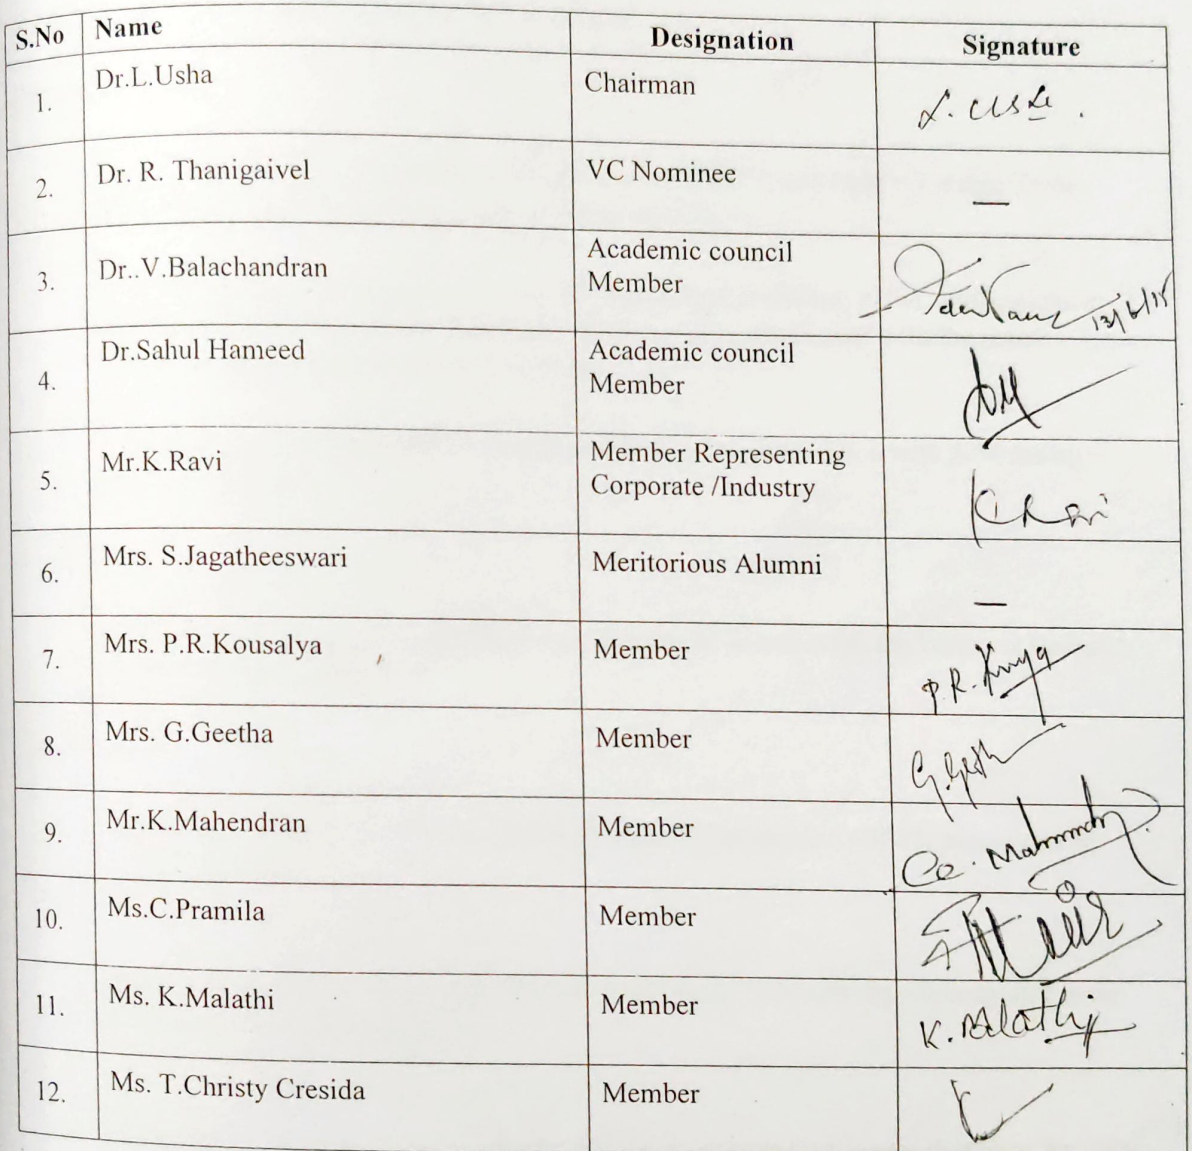 S.No Name Designation Signature
1. Dr.L.Usha Chairman L. Usha.
2. Dr. R. Thanigaivel VC Nominee —
3. Dr..V.Balachandran Academic council
Member
4. Dr.Sahul Hameed Academic council
Member
5. Mr.K.Ravi Member Representing
Corporate /Industry K Ravi
6. Mrs. S.Jagatheeswari Meritorious Alumni —
7. Mrs. P.R.Kousalya Member P.R.
8. Mrs. G.Geetha Member G.
9. Mr.K.Mahendran Member
10. Ms.C.Pramila Member
11. Ms. K.Malathi Member K. Malathi
12. Ms. T.Christy Cresida Member